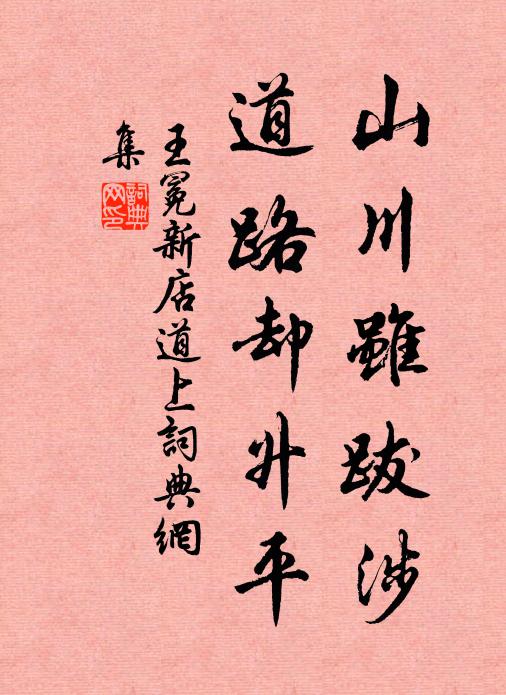 山川雖跋涉
道路却升平
王冕新店道上詞典網
集
詞典网印